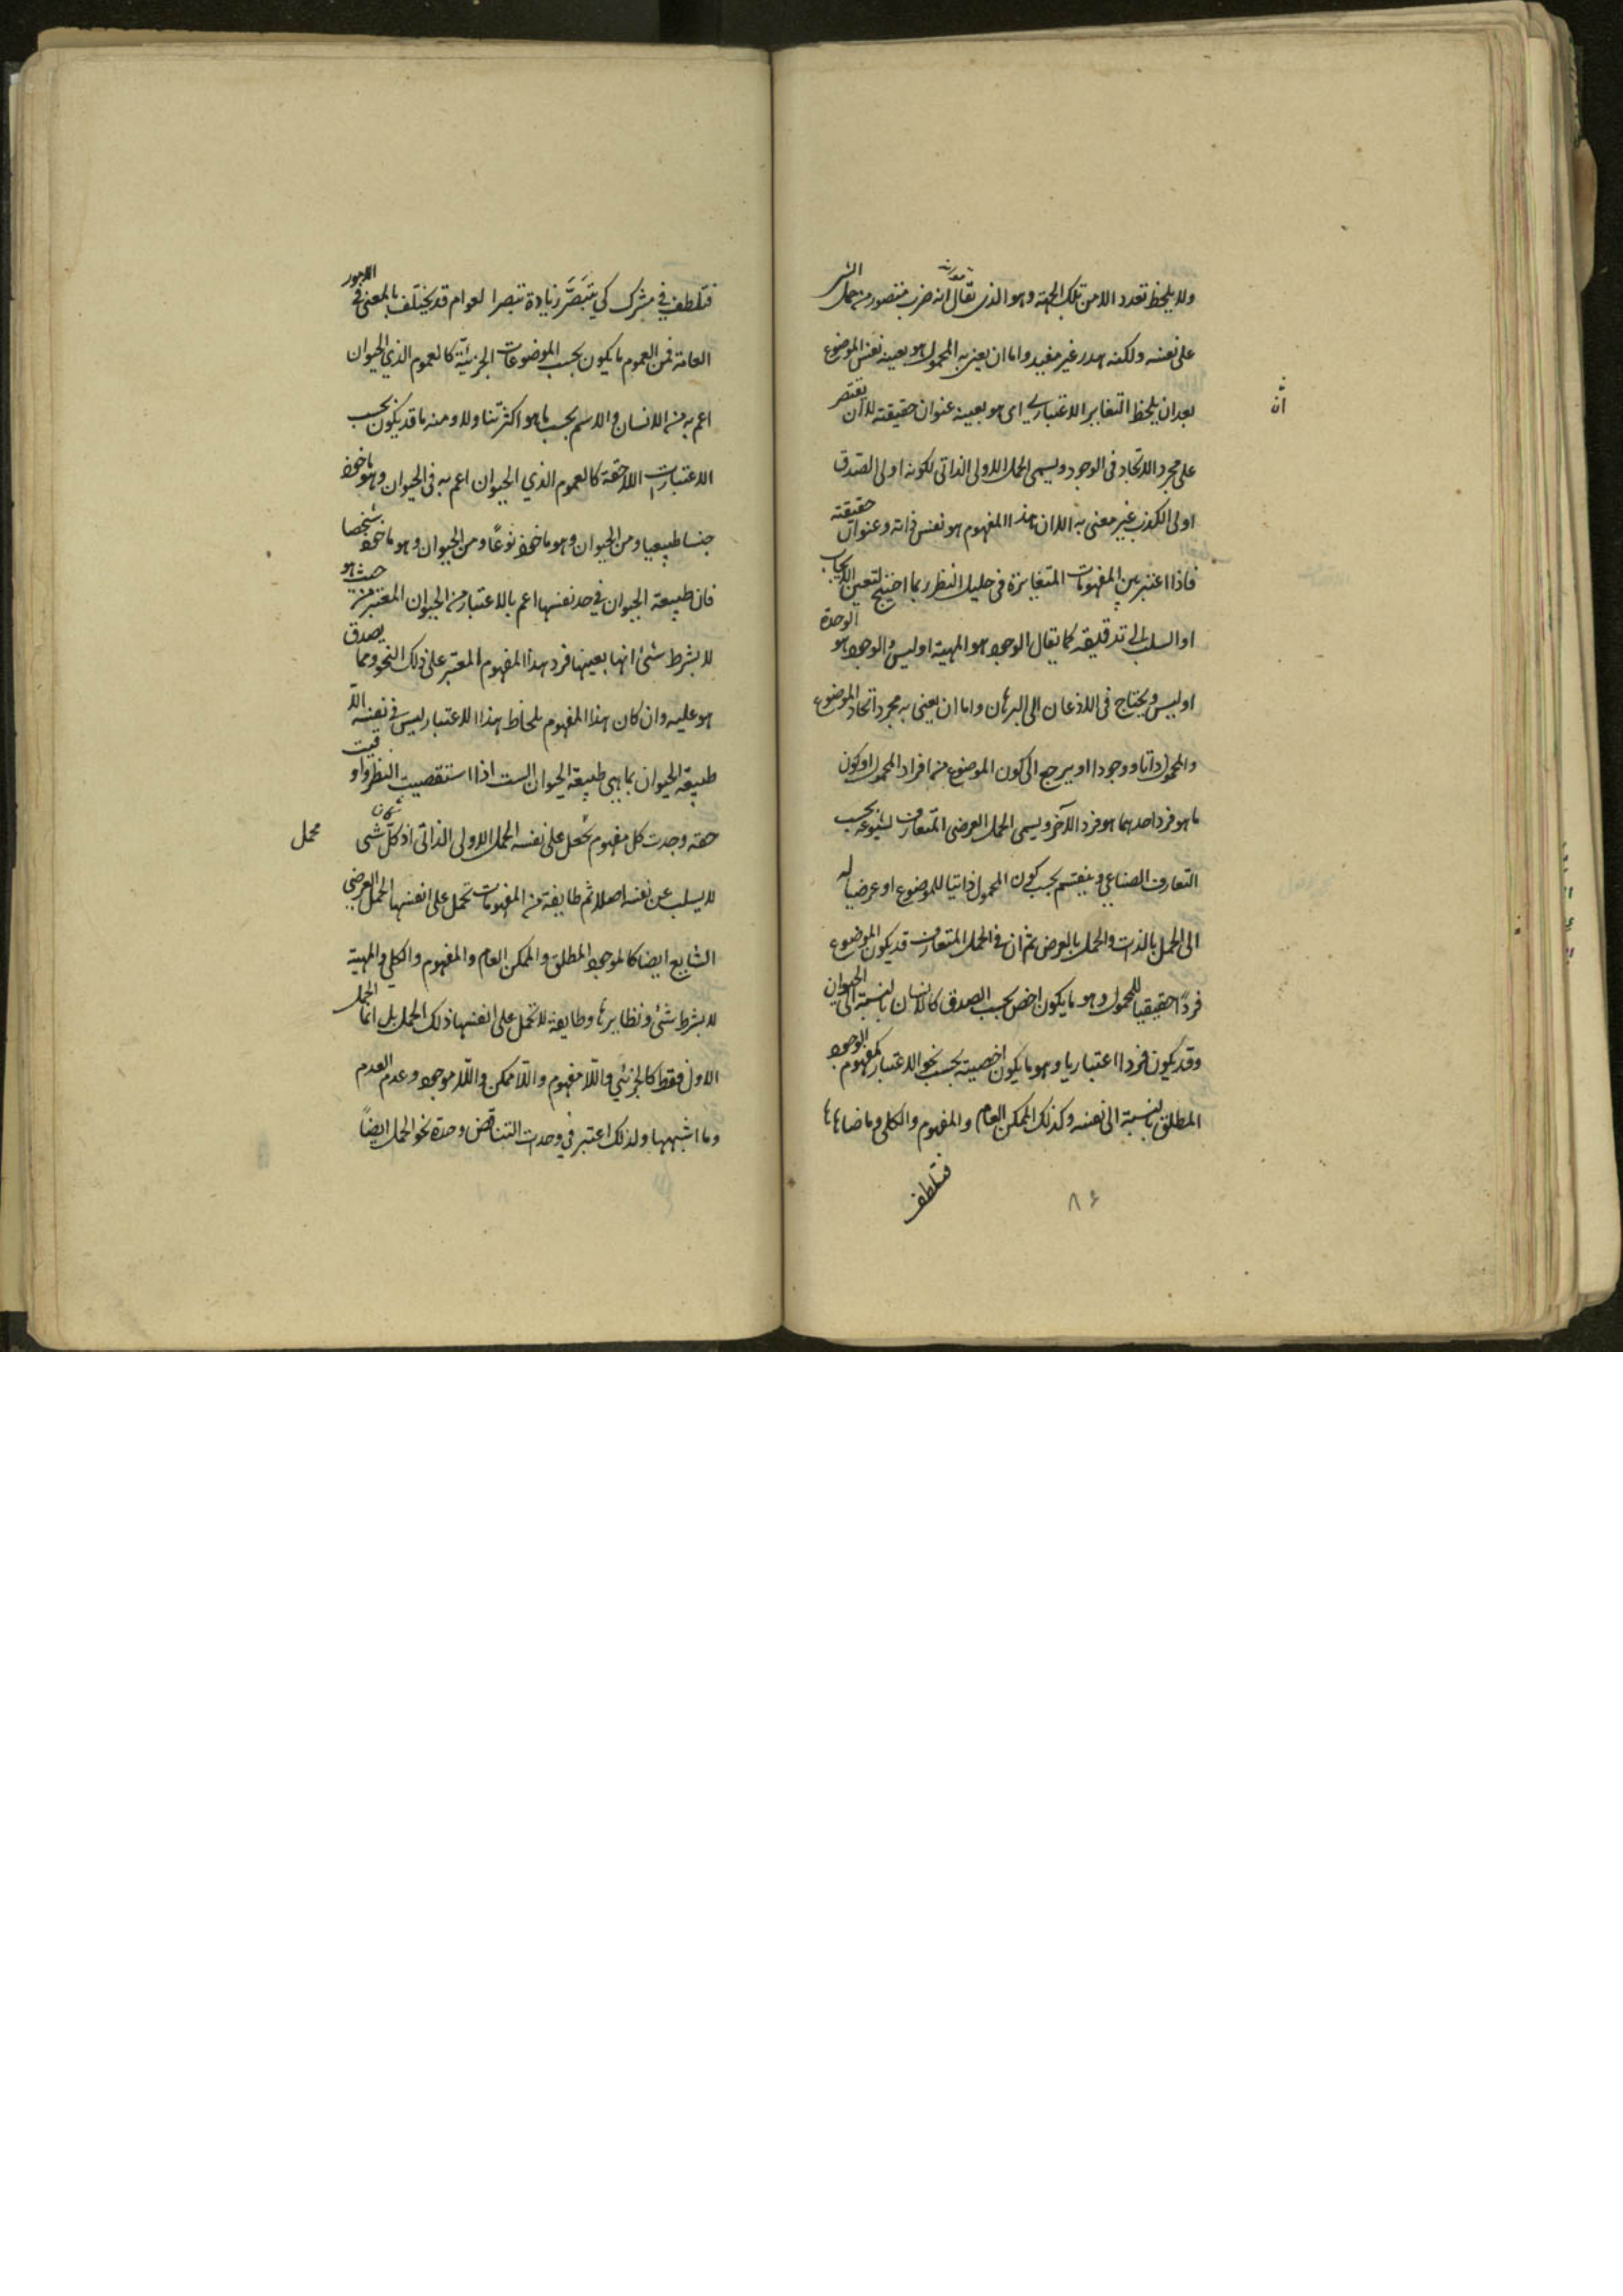 ولا يلحظ تعدد الا من تلك الجهة وهو الذى يقال انه ضرب متصور من حمل الشى
على نفسه ولكنه هدر غير مفيد واما ان يعنى به المحمول هو بعينه نفس الموضوع
بعد ان يلحظ التغاير الاعتبارى اى هو بعينه عنوان حقيقته لا ان يقتصر
ان
على مجرد الاتحاد فى الوجود ويسمى الحمل الاولى الذاتى لكونه اولى الصدق
او اولى الكذب غير معنى به الا ان هذا المفهوم هو نفس ذاته وعنوان حقيقته
فاذا اعتبر بين المفهومات المتغايرة فى جليل النظر ربما احتيج لتعيين الايجاب
او السلب الى تدقيق كما يقال الوجود هو المهية او ليس والوجود هو الوحدة
او ليس ويحتاج فى الاذعان الى البرهان واما ان يعنى به مجرد اتحاد الموضوع
والمحمول ذاتا ووجودا او يرجع الى كون الموضوع من افراد المحمول او كون
ما هو فرد احدهما هو فرد الآخر ويسمى الحمل العرضى المتعارف لشيوعه بحسب
التعارف الصناعى وينقسم بحسب كون المحمول ذاتيا للموضوع او عرضيا له
الى الحمل بالذات والحمل بالعرض ثم ان فى الحمل المتعارف قد يكون الموضوع
فردا حقيقيا للمحمول وهو ما يكون اخص بحسب الصدق كالانسان بالنسبة الى الحيوان
وقد يكون فردا اعتباريا وهو ما يكون اخصيته بحسب نحو الاعتبار كمفهوم الوجود
المطلق بالنسبة الى نفسه وكذلك الممكن العام والمفهوم والكلى وما ضاهاها
فتلطف
٨٤
فتلطف فى سرك كى يتبصر زيادة تبصر العوام قد يختلف بالمعنى فى الامور
العامة فمن العموم ما يكون بحسب الموضوعات الجزئية كالعموم الذي الحيوان
اعم به من الانسان والاسم بحسب ما هو اكثر تناولا ومنه ما قد يكون بحسب
الاعتبارات اللاحقة كالعموم الذي الحيوان اعم به فى الحيوان وهو ماخوذ
جنسا طبيعيا ومن الحيوان وهو ماخوذ نوعًا ومن الحيوان وهو ماخوذ شخصا
فان طبيعة الحيوان فى حد نفسها اعم بالاعتبار من الحيوان المعتبر من حيث هو
لا بشرط شئ انها بعينها فرد هذا المفهوم المعتبر على ذلك النحو ومما يصدق
هو عليه وان كان هذا المفهوم بلحاظ هذا الاعتبار ليس فى نفسه الا
طبيعة الحيوان بما هى طبيعة الحيوان الست اذا استقصيت النظر واوفيت
حقه وجدت كل مفهوم يحمل على نفسه الحمل الاولى الذاتى اذ كل شى
محمل
لا يسلب عن نفسه اصلا ثم طايفة من المفهومات تحمل على انفسها الحمل العرضي
الشايع ايضا كالموجود المطلق والممكن العام والمفهوم والكلى والمهية
لا بشرط شئ ونظايرها وطايفة لا تحمل على انفسها ذلك الحمل بل انما الحمل
الاول فقط كالجزئي واللا مفهوم واللا ممكن واللا موجود وعدم العدم
وما اشبهها ولذلك اعتبر فى وحدت التناقض وحدة نحو الحمل ايضاً